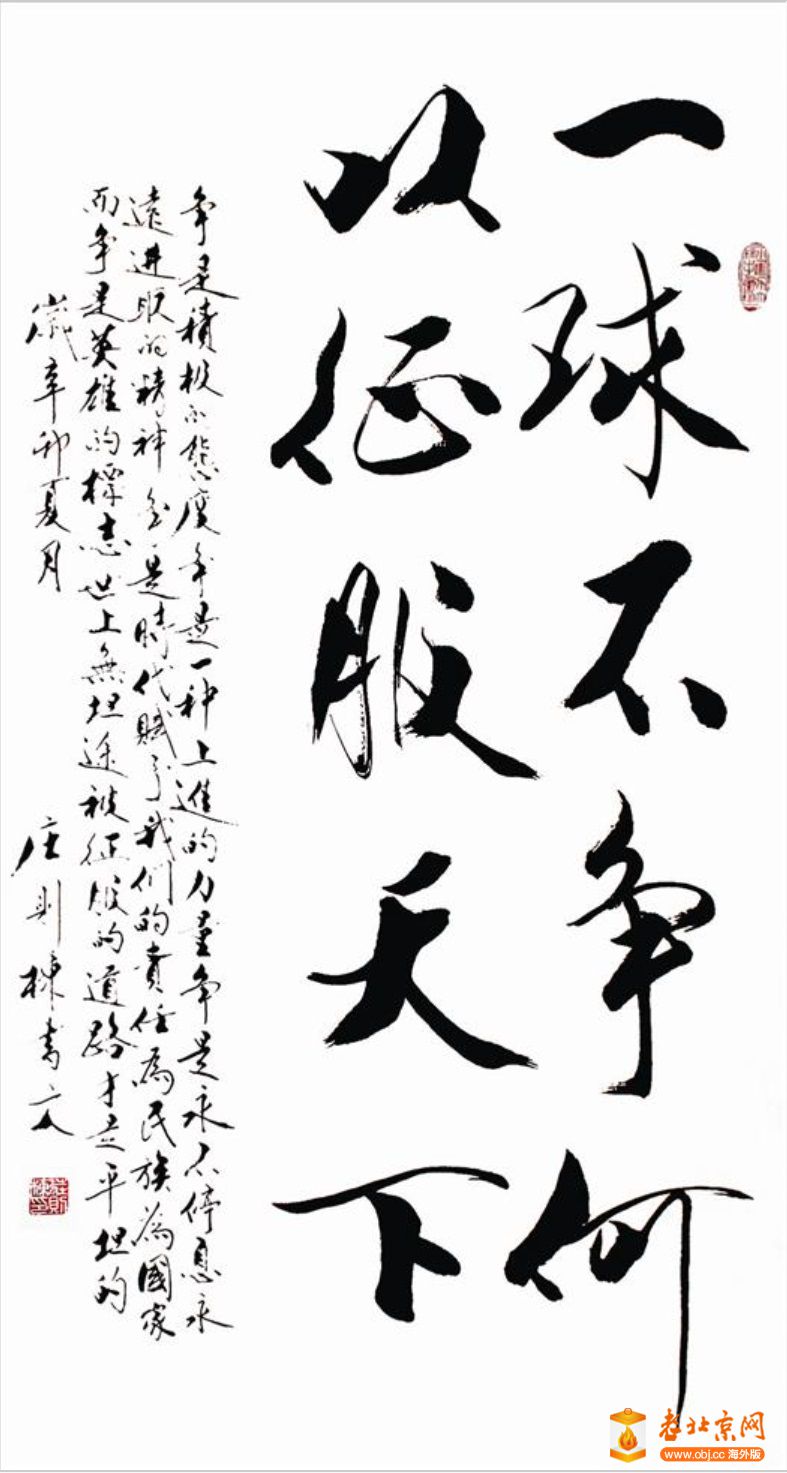 一球不争何
以征服天下
争是積极的態度争是一种上進的力量争是永不停息永
遠進取的精神争是時代賦予我们的責任為民族為國家
而争是英雄的標志世上無坦途被征服的道路才是平坦的
歲辛卯夏月
庄则棟書
老北京网
www.obj.cc 海外版